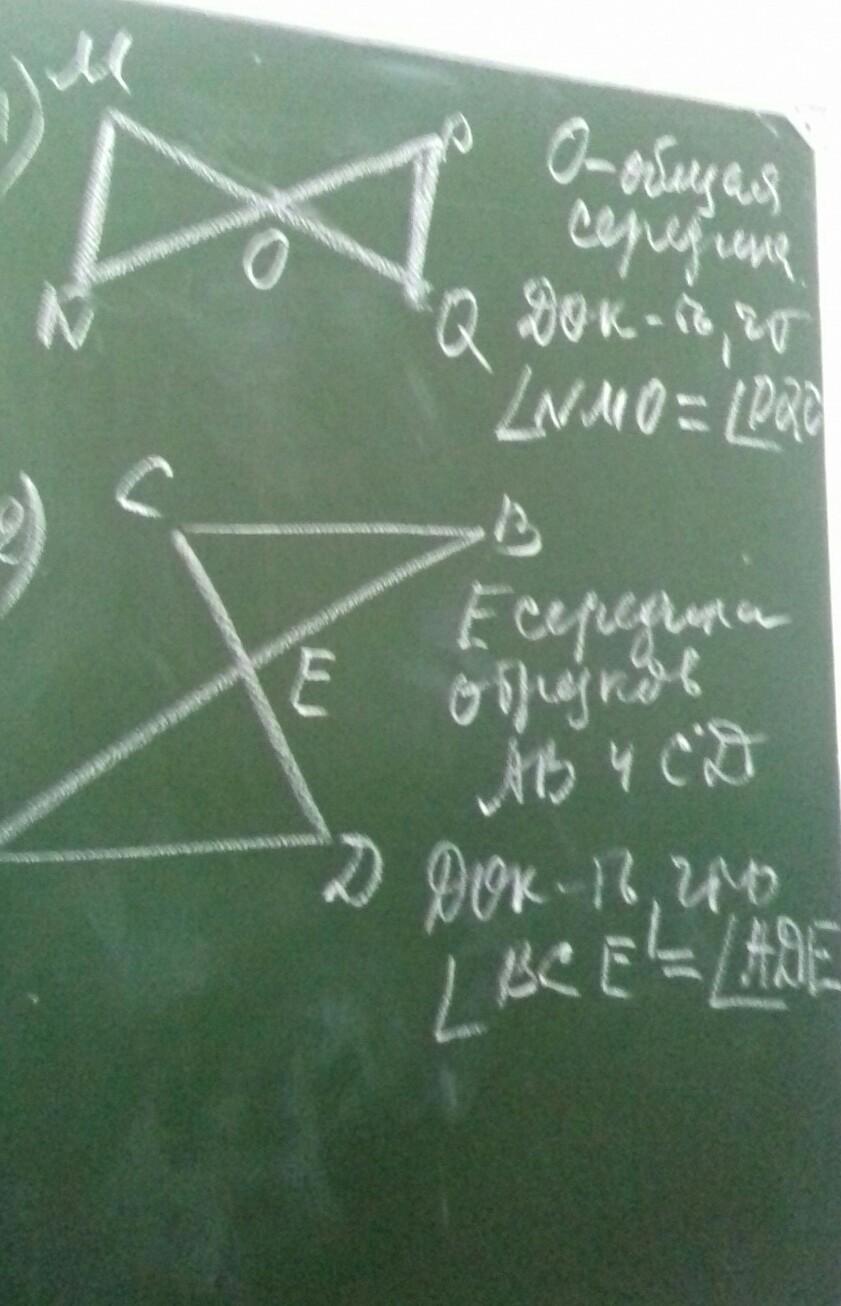 1)
M
P
O
N
Q
O-общая
середина.
Док-ть, что
∠NMO = ∠PQO
2)
C
B
E
D
E середина
отрезков
AB и CD
Док-ть, что
∠BCE = ∠ADE